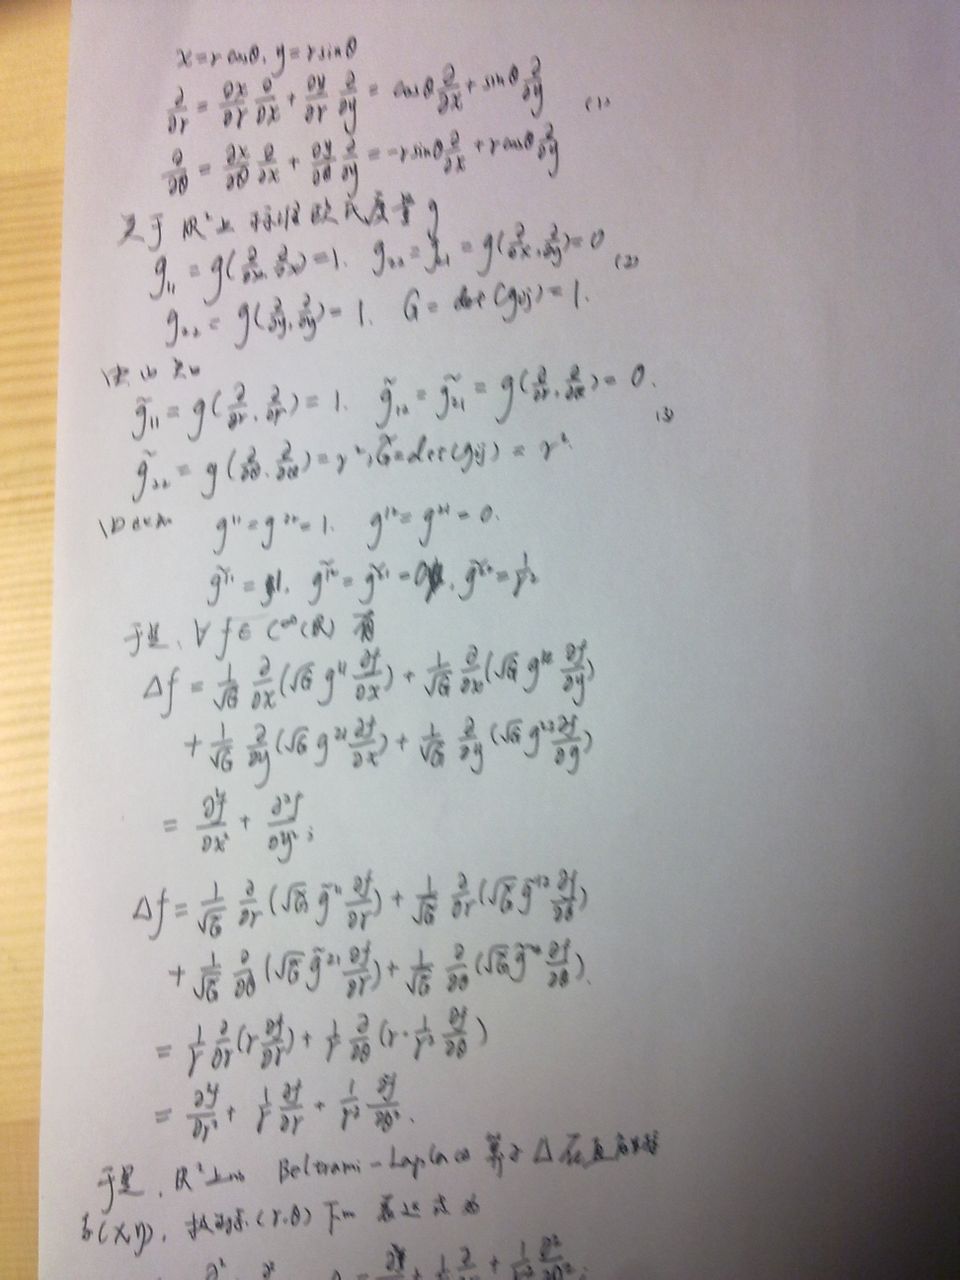 x=rcosθ, y=rsinθ
∂/∂r = ∂x/∂r ∂/∂x + ∂y/∂r ∂/∂y = cosθ ∂/∂x + sinθ ∂/∂y (1)
∂/∂θ = ∂x/∂θ ∂/∂x + ∂y/∂θ ∂/∂y = -rsinθ ∂/∂x + rcosθ ∂/∂y
关于 ℝ²上 标准欧氏度量 g
g₁₁ = g(∂/∂x, ∂/∂x) = 1. g₂₂ = g₂₁ = g(∂/∂x, ∂/∂y) = 0 (2)
g₂₂ = g(∂/∂y, ∂/∂y) = 1. G = det(gij) = 1.
由(1)知
g̃₁₁ = g(∂/∂r, ∂/∂r) = 1. g̃₁₂ = g̃₂₁ = g(∂/∂r, ∂/∂θ) = 0. (3)
g̃₂₂ = g(∂/∂θ, ∂/∂θ) = r², G̃ = det(gij) = r².
g¹¹ = g²² = 1. g¹² = g²¹ = 0.
g̃¹¹ = 1, g̃¹² = g̃²¹ = 0, g̃²² = 1/r²
于是, ∀f∈C^∞(ℝ) 有
Δf = 1/√G ∂/∂x(√G g¹¹ ∂f/∂x) + 1/√G ∂/∂x(√G g¹² ∂f/∂y)
+ 1/√G ∂/∂y(√G g²¹ ∂f/∂x) + 1/√G ∂/∂y(√G g²² ∂f/∂y)
= ∂²f/∂x² + ∂²f/∂y²;
Δf = 1/√G̃ ∂/∂r(√G̃ g̃¹¹ ∂f/∂r) + 1/√G̃ ∂/∂r(√G̃ g̃¹² ∂f/∂θ)
+ 1/√G̃ ∂/∂θ(√G̃ g̃²¹ ∂f/∂r) + 1/√G̃ ∂/∂θ(√G̃ g̃²² ∂f/∂θ).
= 1/r ∂/∂r(r ∂f/∂r) + 1/r ∂/∂θ(r·1/r² ∂f/∂θ)
= ∂²f/∂r² + 1/r ∂f/∂r + 1/r² ∂²f/∂θ².
于是, ℝ²上的 Beltrami-Laplace 算子 Δ 在直角坐标
系(x,y), 极坐标(r,θ)下的 表达式为